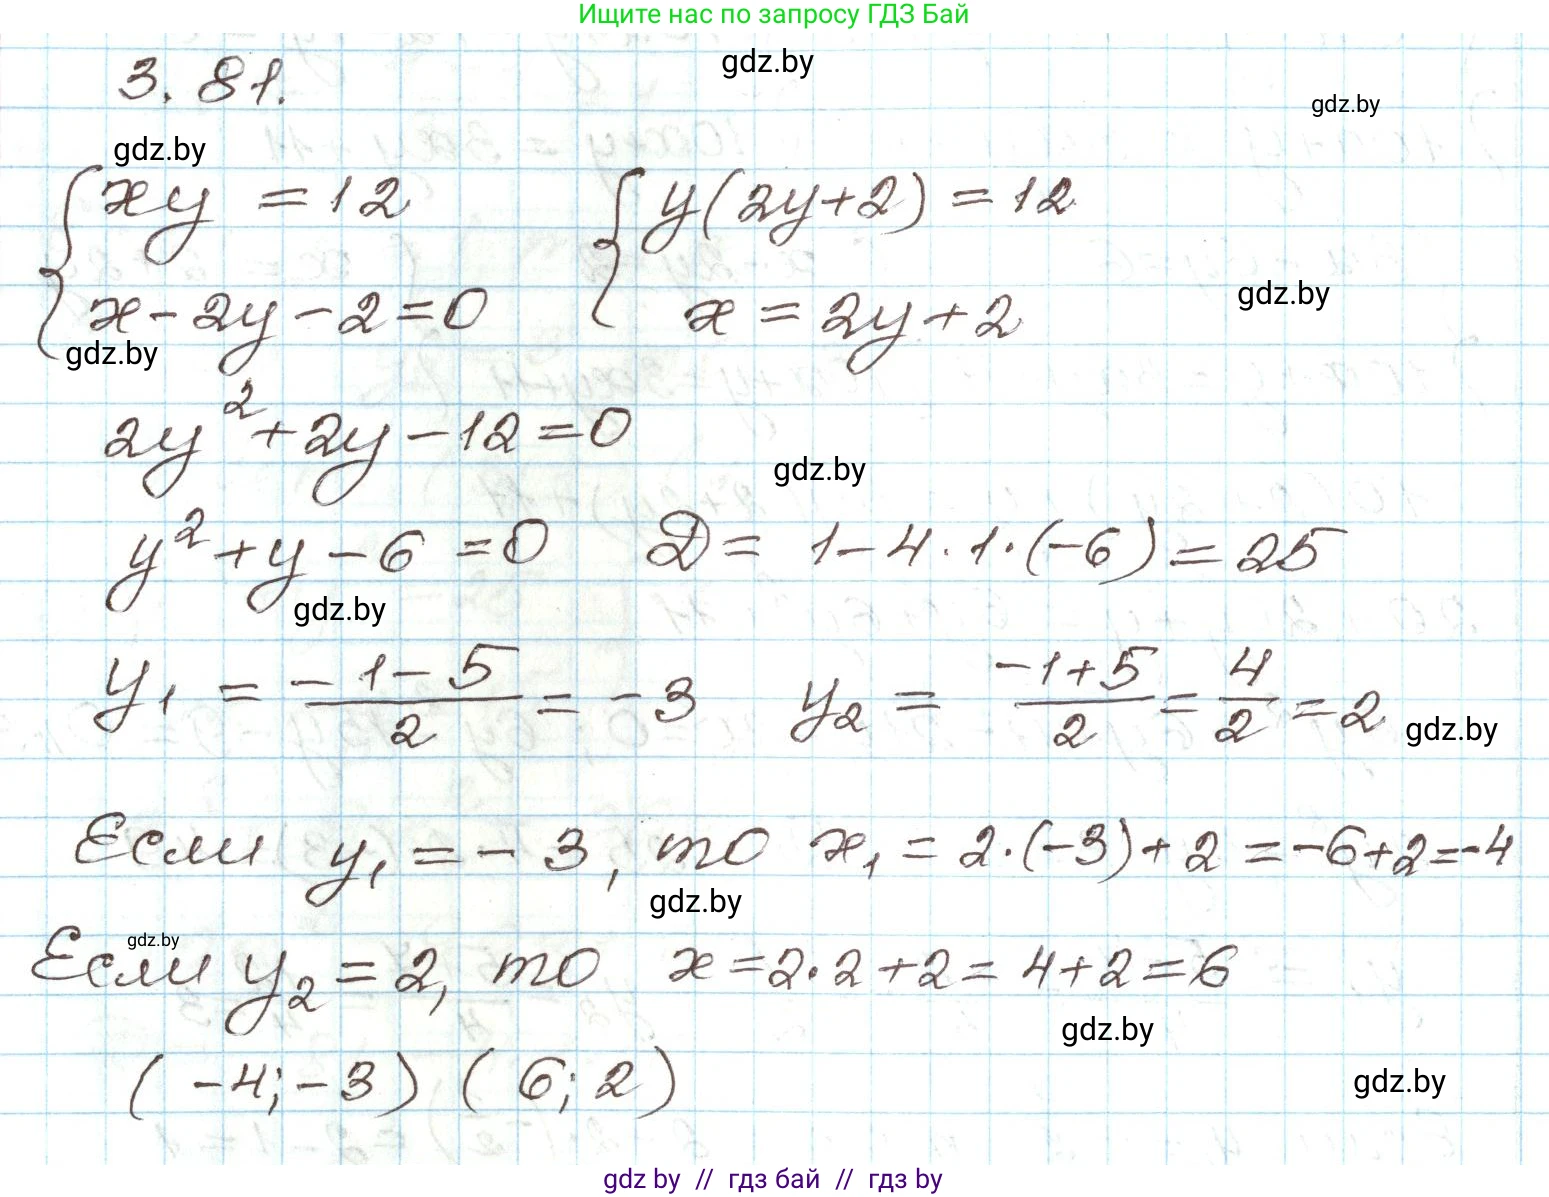 Ищите нас по запросу ГДЗ Бай
gdz.by
3.81.
gdz.by
gdz.by
xy = 12
y(2y+2) = 12
gdz.by
x - 2y - 2 = 0
x = 2y + 2
gdz.by
2y² + 2y - 12 = 0
gdz.by
y² + y - 6 = 0 D = 1 - 4 · 1 · (-6) = 25
gdz.by
y₁ = (-1 - 5)/2 = -3 y₂ = (-1+5)/2 = 4/2 = 2
gdz.by
Если y₁ = -3, то x₁ = 2·(-3) + 2 = -6+2=-4
gdz.by
gdz.by
Если y₂ = 2, то x = 2·2 + 2 = 4+2 = 6
gdz.by
(-4; -3) (6; 2)
gdz.by
gdz by // гдз бай // гдз by